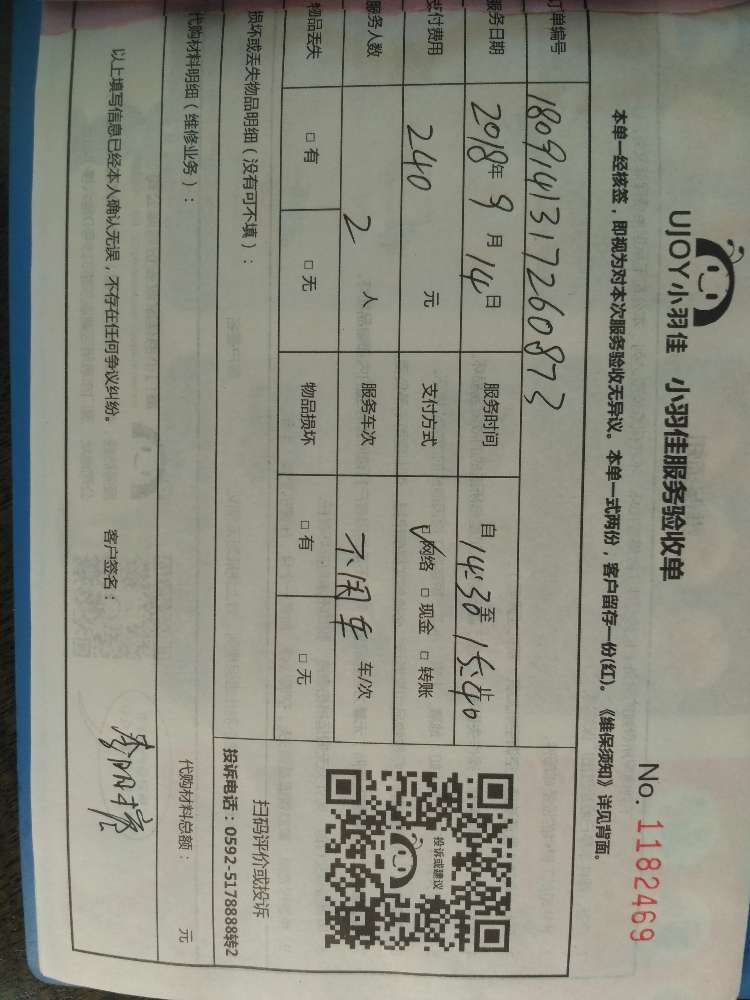 UJOY小羽佳 小羽佳服务验收单
No. 1182469
本单一经核签，即视为对本次服务验收无异议。本单一式两份，客户留存一份(红)。《维保须知》详见背面。
订单编号 180914131726087 3
服务日期 2018年 9 月 14 日 服务时间 自 14:30 至
支付费用 240 元 支付方式 网络 □ 现金 □ 转账
服务人数 2 人 服务车次 不用车 车/次
物品丢失 □ 有 □ 无 物品损坏 □ 有 □ 无
投诉或建议
扫码评价或投诉
投诉电话：0592-5178888转2
损坏或丢失物品明细（没有可不填）：
代购材料明细（维修业务）： 代购材料总额： 元
以上填写信息已经本人确认无误，不存在任何争议纠纷。 客户签名：